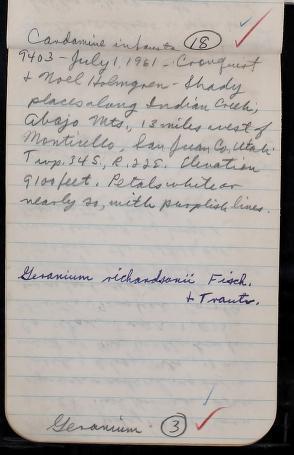 Cardamine infausta (18)
9403 - July 1, 1961 - Cronquist
& Noel Holmgren - Shady
places along Indian Creek,
Abajo Mts., 13 miles west of
Monticello, San Juan Co., Utah.
Twp. 34S, R. 22S. Elevation
9100 feet. Petals white or
nearly so, with purplish lines.
Geranium richardsonii Fisch.
& Trautv.
Geranium. (3)